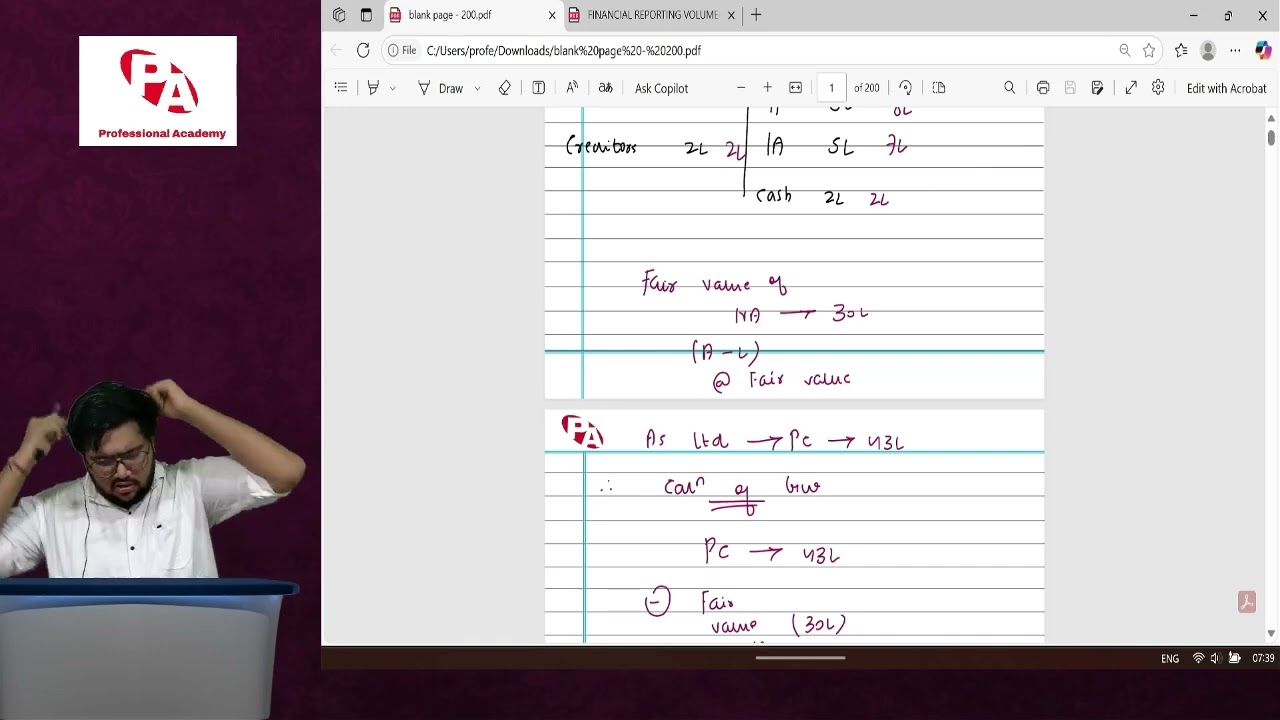 PA
Professional Academy
blank page - 200.pdf
FINANCIAL REPORTING VOLUME-
File C:/Users/profe/Downloads/blank%20page%20-%20200.pdf
Draw
Ask Copilot
1 of 200
Edit with Acrobat
Creditors 2L 2L IA 5L 7L
Cash 2L 2L
Fair value of
NA → 30L
(A - L)
@ Fair value
PA
As Ltd → PC → 43L
∴ Calⁿ of
PC → 43L
(-) Fair
value (30L)
ENG 07:39